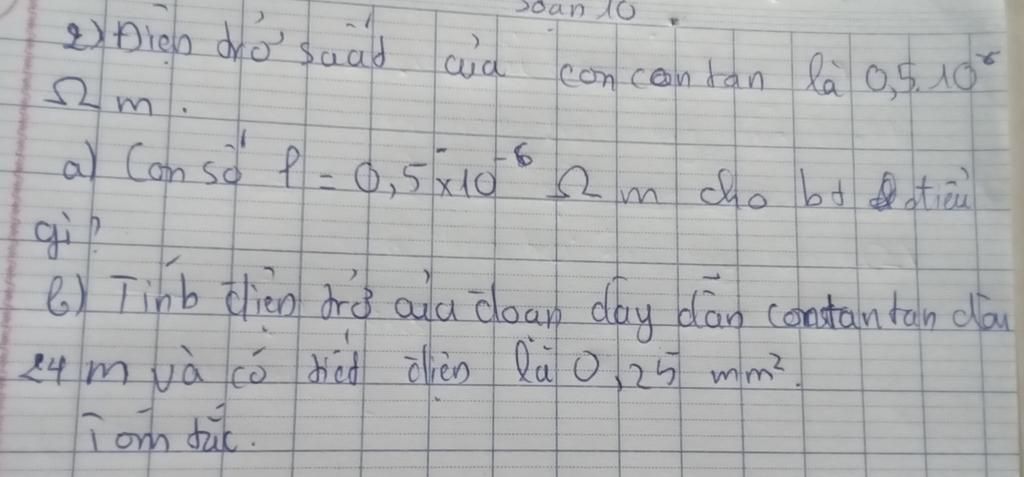 soạn 10.
2) Điện trở suất của concentan là 0,5.10⁻⁶
Ω m.
a) Con số ρ = 0,5 x 10⁻⁶ Ω m cho bd điều
gì?
b) Tính điện trở của đoạn dây dẫn constantan dài
24 m và có tiết diện là 0,25 mm².
Tóm tắt.